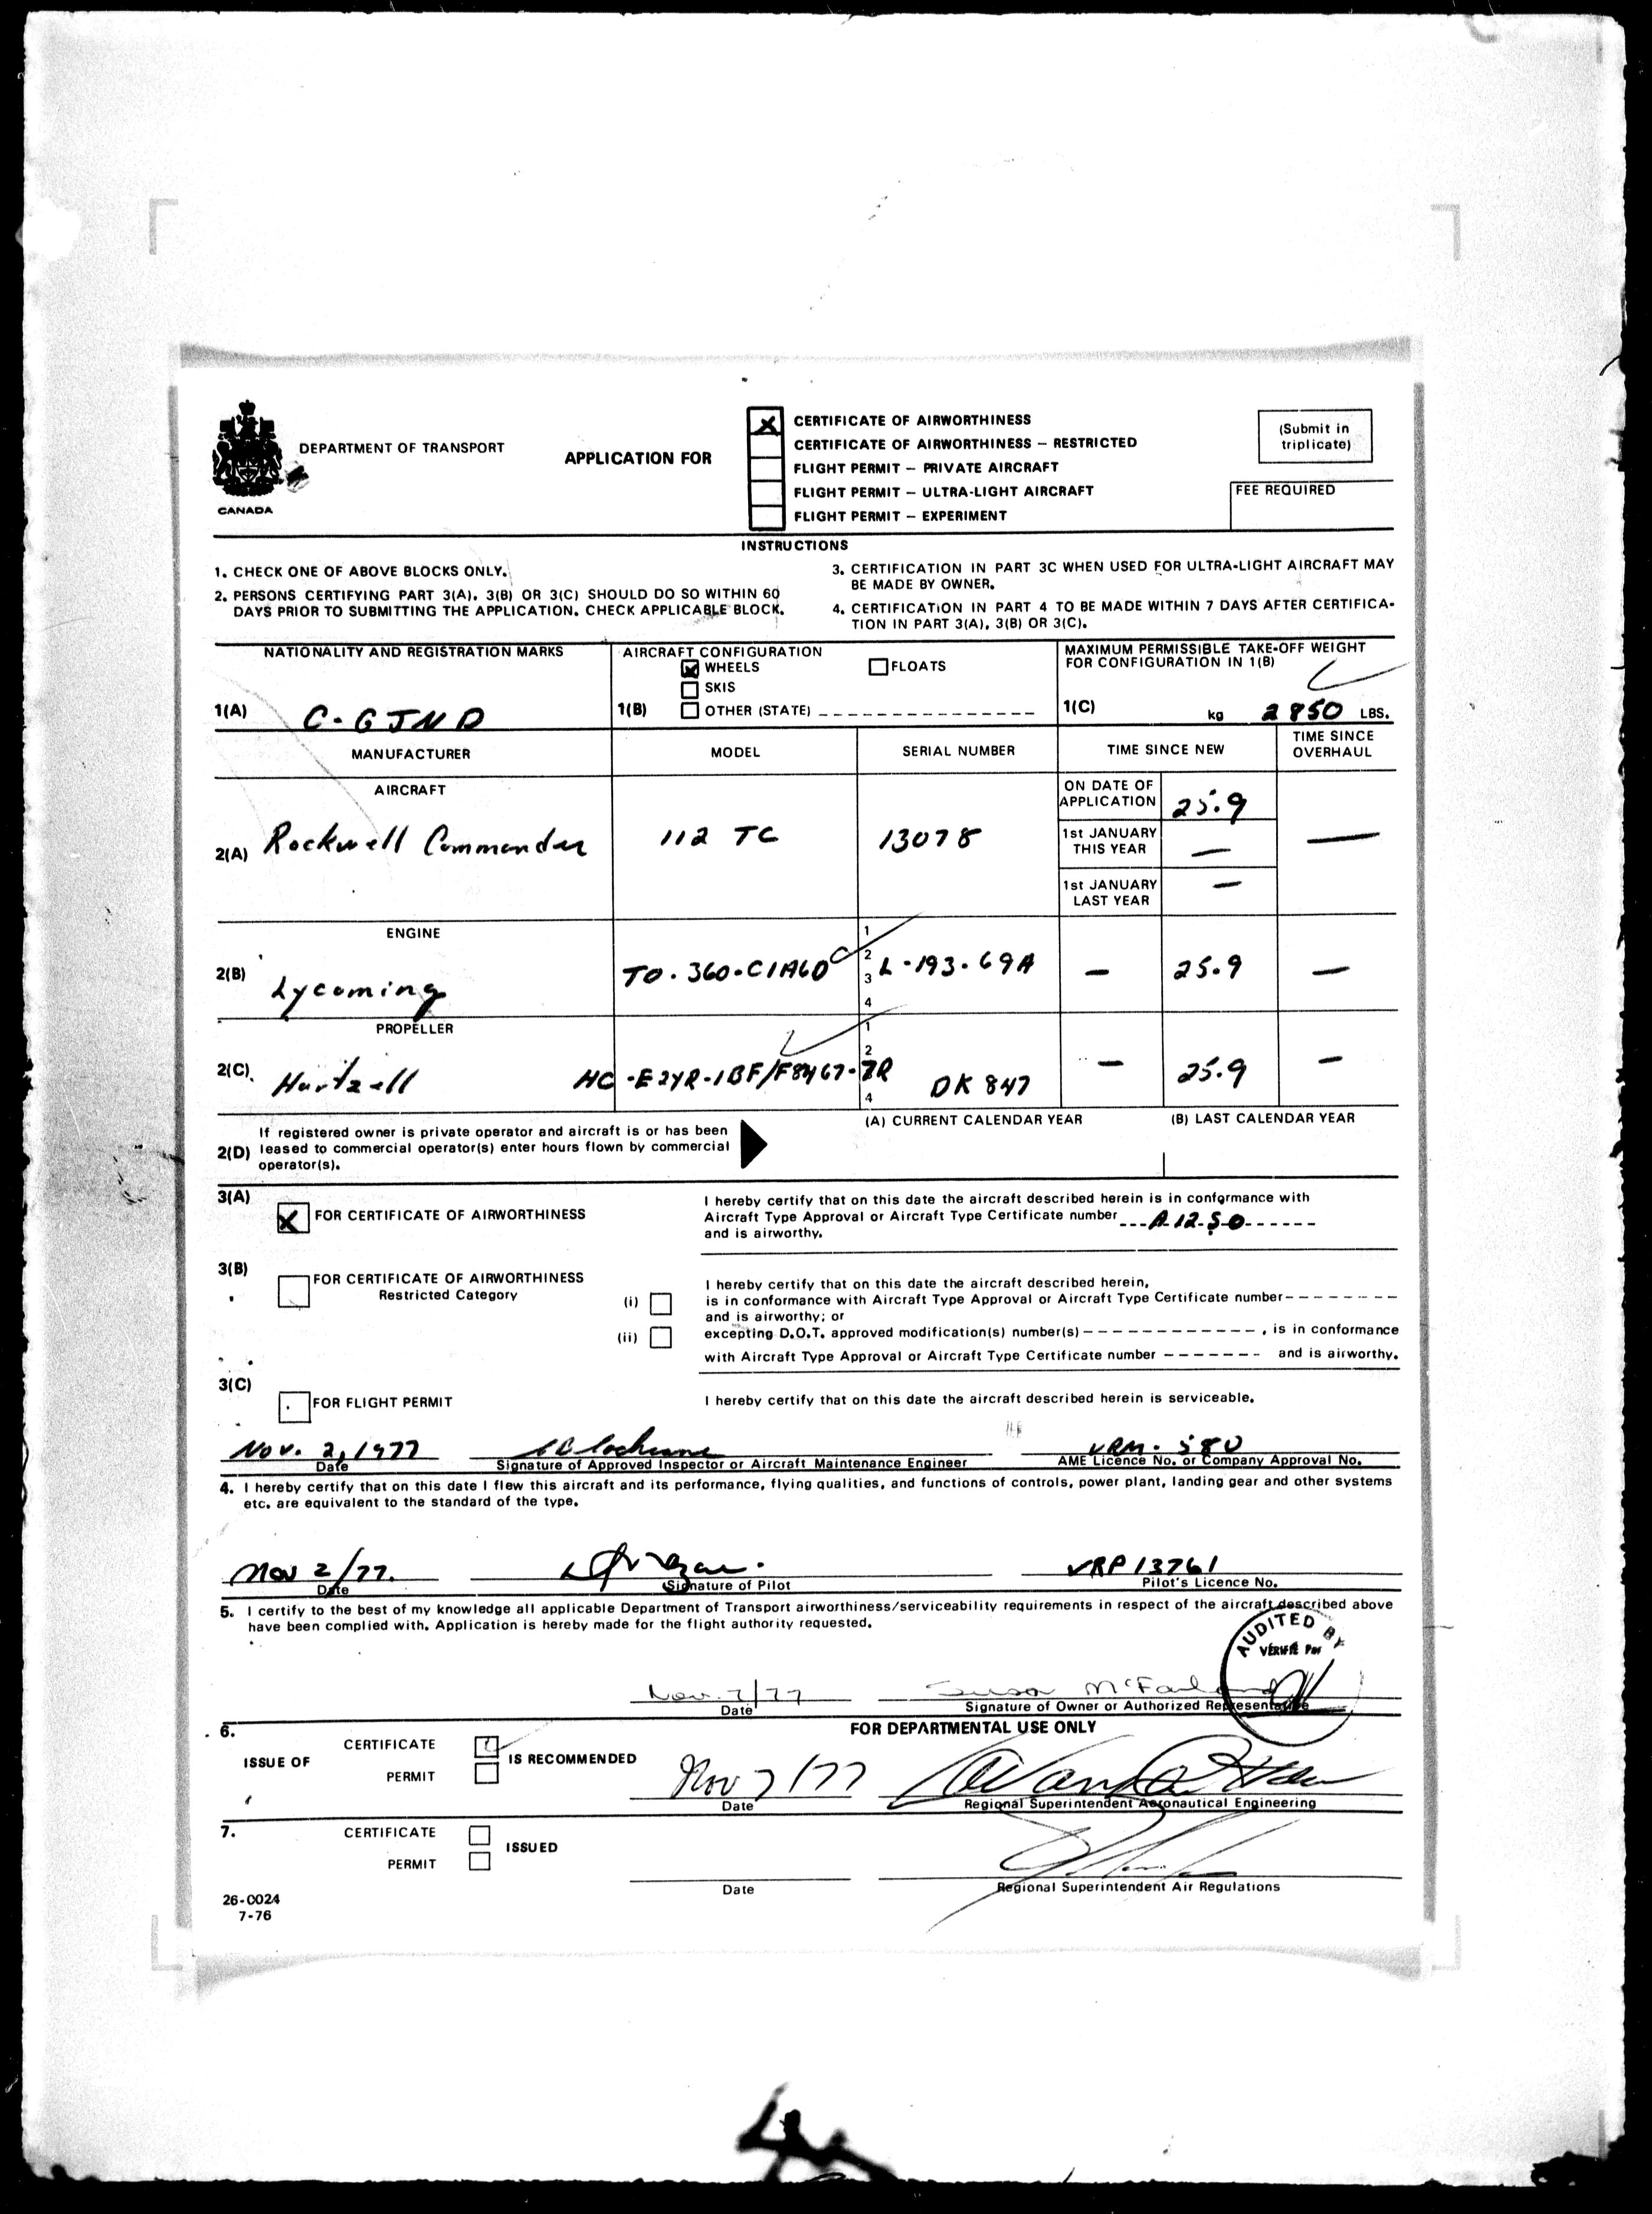 DEPARTMENT OF TRANSPORT
CANADA
APPLICATION FOR
X CERTIFICATE OF AIRWORTHINESS
CERTIFICATE OF AIRWORTHINESS – RESTRICTED
FLIGHT PERMIT – PRIVATE AIRCRAFT
FLIGHT PERMIT – ULTRA-LIGHT AIRCRAFT
FLIGHT PERMIT – EXPERIMENT
(Submit in
triplicate)
FEE REQUIRED
INSTRUCTIONS
1. CHECK ONE OF ABOVE BLOCKS ONLY.
2. PERSONS CERTIFYING PART 3(A), 3(B) OR 3(C) SHOULD DO SO WITHIN 60
DAYS PRIOR TO SUBMITTING THE APPLICATION. CHECK APPLICABLE BLOCK.
3. CERTIFICATION IN PART 3C WHEN USED FOR ULTRA-LIGHT AIRCRAFT MAY
BE MADE BY OWNER.
4. CERTIFICATION IN PART 4 TO BE MADE WITHIN 7 DAYS AFTER CERTIFICA-
TION IN PART 3(A), 3(B) OR 3(C).
NATIONALITY AND REGISTRATION MARKS
1(A) C-GJND
AIRCRAFT CONFIGURATION
X WHEELS FLOATS
SKIS
1(B) OTHER (STATE)
MAXIMUM PERMISSIBLE TAKE-OFF WEIGHT
FOR CONFIGURATION IN 1(B)
1(C) kg 2850 LBS.
MANUFACTURER MODEL SERIAL NUMBER TIME SINCE NEW TIME SINCE
OVERHAUL
AIRCRAFT
2(A) Rockwell Commander 112 TC 13078
ON DATE OF
APPLICATION 25.9
1st JANUARY
THIS YEAR —
1st JANUARY
LAST YEAR —
—
ENGINE
2(B) Lycoming TO-360-C1A6D 1 2 3 4 L-193-69A — 25.9 —
PROPELLER
2(C) Hartzell HC-E2YR-1BF/F8467-7R 1 2 4 DK 847 — 25.9 —
2(D) If registered owner is private operator and aircraft is or has been
leased to commercial operator(s) enter hours flown by commercial
operator(s).
(A) CURRENT CALENDAR YEAR (B) LAST CALENDAR YEAR
3(A)
X FOR CERTIFICATE OF AIRWORTHINESS
I hereby certify that on this date the aircraft described herein is in conformance with
Aircraft Type Approval or Aircraft Type Certificate number A-12-SO
and is airworthy.
3(B)
FOR CERTIFICATE OF AIRWORTHINESS
Restricted Category
I hereby certify that on this date the aircraft described herein,
(i) is in conformance with Aircraft Type Approval or Aircraft Type Certificate number
and is airworthy; or
(ii) excepting D.O.T. approved modification(s) number(s) , is in conformance
with Aircraft Type Approval or Aircraft Type Certificate number and is airworthy.
3(C)
FOR FLIGHT PERMIT
I hereby certify that on this date the aircraft described herein is serviceable.
Nov. 2, 1977 VRM-580
Date Signature of Approved Inspector or Aircraft Maintenance Engineer AME Licence No. or Company Approval No.
4. I hereby certify that on this date I flew this aircraft and its performance, flying qualities, and functions of controls, power plant, landing gear and other systems
etc. are equivalent to the standard of the type.
Nov 2/77. VRP 13761
Date Signature of Pilot Pilot's Licence No.
5. I certify to the best of my knowledge all applicable Department of Transport airworthiness/serviceability requirements in respect of the aircraft described above
have been complied with. Application is hereby made for the flight authority requested.
AUDITED BY
VÉRIFIÉ Par
Nov. 7/77 Susan
Date Signature of Owner or Authorized Representative
6. FOR DEPARTMENTAL USE ONLY
ISSUE OF CERTIFICATE
PERMIT
IS RECOMMENDED
Nov 7/77
Date Regional Superintendent Aeronautical Engineering
7. CERTIFICATE
PERMIT
ISSUED
Date Regional Superintendent Air Regulations
26-0024
7-76